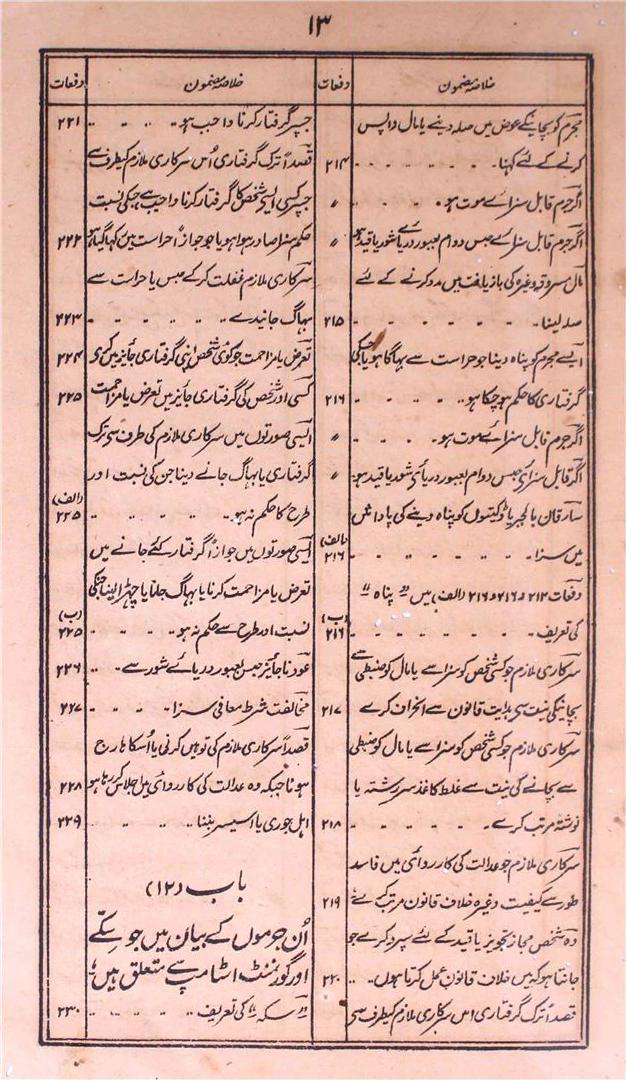 ۱۳
خلاصہ مضمون دفعات
مجرم کو بچانیکے عوض میں صلہ دینے یا مال واپس
کرنے کے لئے کہنا۔ ۲۱۴
اگر جرم قابل سزائے موت ہو۔ 〃
اگر جرم قابل سزائے حبس دوام بعبور دریائے شور یا قید ہو 〃
مال مسروقہ وغیرہ کی بازیافت میں مدد کرنے کے لئے
صلہ لینا۔ ۲۱۵
ایسے مجرم کو پناہ دینا جو حراست سے بہاگا ہو یا جسکی
گرفتاری کا حکم ہو چکا ہو۔ ۲۱۶
اگر جرم قابل سزائے موت ہو۔ 〃
اگر قابل سزائے حبس دوام بعبور دریائے شور یا قید ہو۔ 〃
سارقان بالجبر یا ڈکیتوں کو پناہ دینے کی پاداش
میں سزا۔ (الف) ۲۱۶
دفعات ۲۱۲ و ۲۱۶ و ۲۱۶ (الف) میں "پناہ"
کی تعریف۔ (ب) ۲۱۶
سرکاری ملازم جو کسی شخص کو سزا سے یا مال کو ضبطی سے
بچانیکی نیت سے ہدایت قانون سے انحراف کرے ۲۱۷
سرکاری ملازم جو کسی شخص کو سزا سے یا مال کو ضبطی
سے بچانے کی نیت سے غلط کاغذ سررشتہ یا
نوشتہ مرتب کرے۔ ۲۱۸
سرکاری ملازم جو عدالت کی کارروائی میں فاسد
طور سے کیفیت وغیرہ خلاف قانون مرتب کرے ۲۱۹
وہ شخص مجاز تجویز یا قید کے لئے سپرد کرے جو
جانتا ہو کہ میں خلاف قانون عمل کرتا ہوں۔ ۲۲۰
قصداً ترک گرفتاری اس سرکاری ملازم کیطرف سے
خلاصہ مضمون دفعات
جسپر گرفتار کرنا واجب ہو۔ ۲۲۱
قصداً ترک گرفتاری اُس سرکاری ملازم کیطرف سے
جسپر کسی ایسے شخص کا گرفتار کرنا واجب ہے جسکی نسبت
حکم سزا صادر ہوا ہو یا جو جوازاً حراست میں رکھا گیا ہو ۲۲۲
سرکاری ملازم غفلت کرکے حبس یا حراست سے
بہاگ جانیدے۔ ۲۲۳
تعرض یا مزاحمت جو کوئی شخص اپنی گرفتاری جائز میں کرے ۲۲۴
کسی اور شخص کی گرفتاری جائز میں تعرض یا مزاحمت ۲۲۵
ایسی صورتوں میں سرکاری ملازم کی طرف سے ترک
گرفتاری یا بہاگ جانے دینا جن کی نسبت اور
طرح کا حکم نہ ہو۔ (الف) ۲۲۵
ایسی صورتوں میں جوازاً گرفتار کئے جانے میں
تعرض یا مزاحمت کرنا یا بہاگ جانا یا چھڑا لینا جنکی
نسبت اور طرح سے حکم نہ ہو۔ (ب) ۲۲۵
عود ناجائز حبس بعبور دریائے شور سے۔ ۲۲۶
مخالفت شرط معافی سزا۔ ۲۲۷
قصداً سرکاری ملازم کی توہین کرنی یا اُسکا ہارج
ہونا جبکہ وہ عدالت کی کارروائی میں اجلاس کررہا ہو ۲۲۸
اہل جوری یا اسیسر بننا ۲۲۹
باب (۱۲)
اُن جرموں کے بیان میں جو سکّے
اور گورنمنٹ اسٹامپ سے متعلق ہیں۔
"سکہ" کی تعریف۔ ۲۳۰